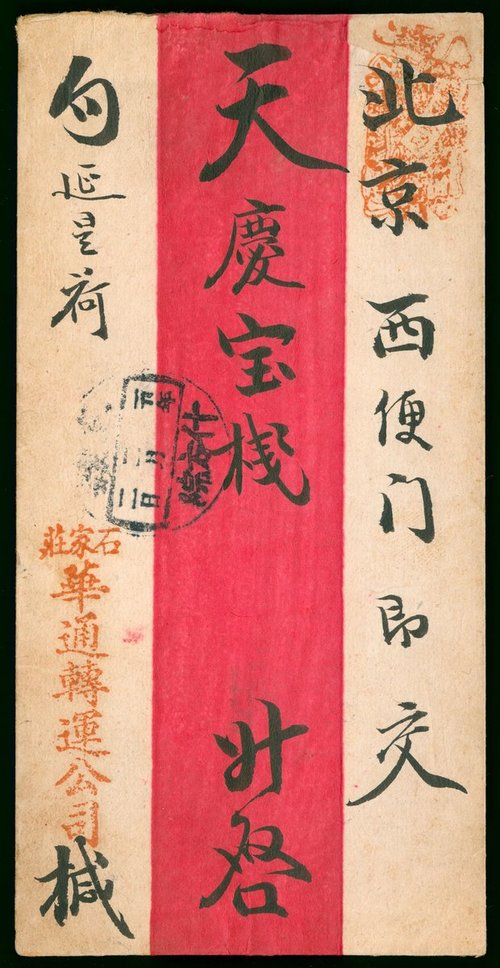 北京西便门即交
天慶宝棧 升啓
勿延是荷
石家莊
華通轉運公司
椷